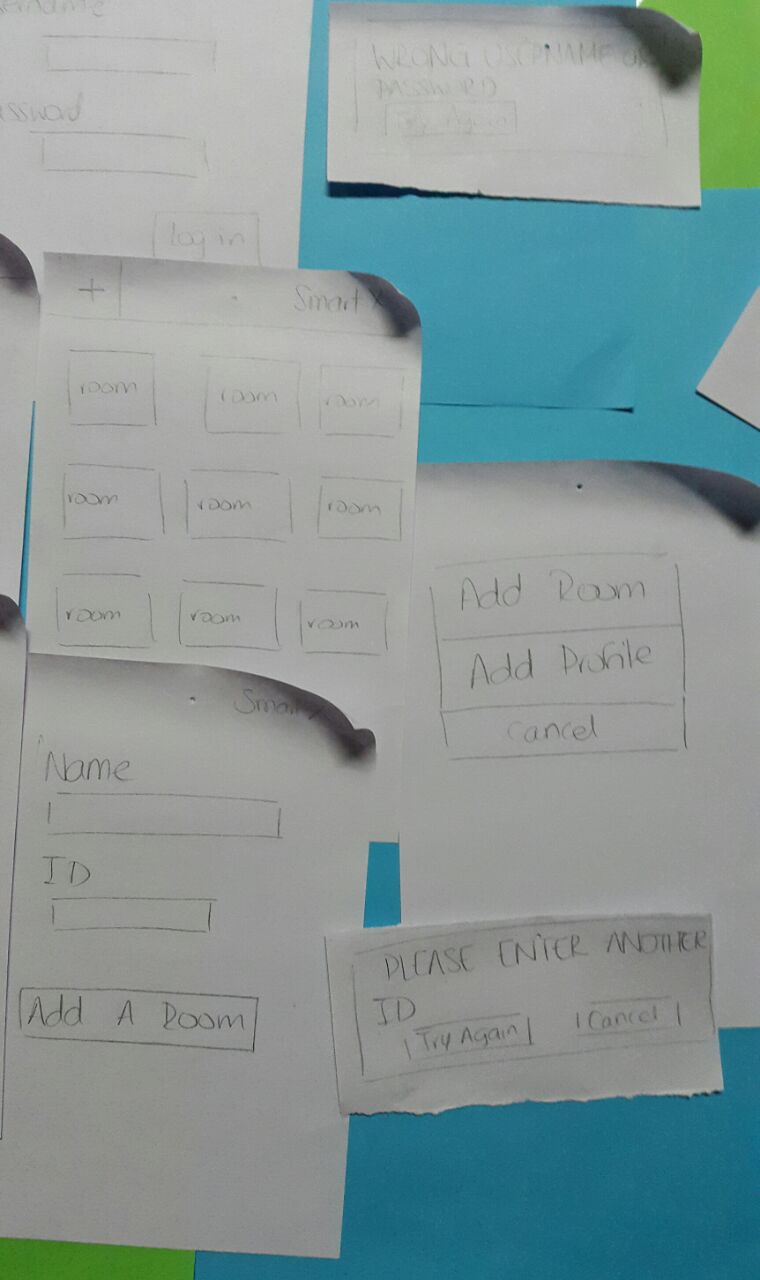 Username
Password
Log in
WRONG USERNAME OR
PASSWORD
Try Again
+
Smart X
room room room
room room room
room room room
Add Room
Add Profile
Cancel
Smart X
Name
ID
Add A Room
PLEASE ENTER ANOTHER
ID
Try Again Cancel